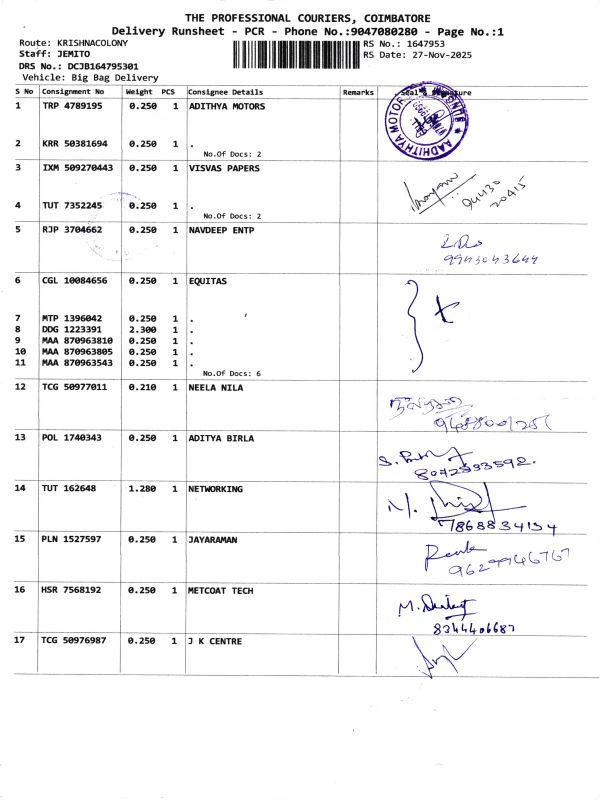 THE PROFESSIONAL COURIERS, COIMBATORE
Delivery Runsheet - PCR - Phone No.:9047080280 - Page No.:1
Route: KRISHNACOLONY RS No.: 1647953
Staff: JEMITO RS Date: 27-Nov-2025
DRS No.: DCJB164795301
Vehicle: Big Bag Delivery
S No Consignment No Weight PCS Consignee Details Remarks Seal & Signature
1 TRP 4789195 0.250 1 ADITHYA MOTORS
AADHITHYA MOTORS
2 KRR 50381694 0.250 1 .
No.Of Docs: 2
3 IXM 509270443 0.250 1 VISVAS PAPERS
94430
20415
4 TUT 7352245 0.250 1 .
No.Of Docs: 2
5 RJP 3704662 0.250 1 NAVDEEP ENTP
9943043644
6 CGL 10084656 0.250 1 EQUITAS
7 MTP 1396042 0.250 1 .
8 DDG 1223391 2.300 1 .
9 MAA 870963810 0.250 1 .
10 MAA 870963805 0.250 1 .
11 MAA 870963543 0.250 1 .
No.Of Docs: 6
12 TCG 50977011 0.210 1 NEELA NILA
13 POL 1740343 0.250 1 ADITYA BIRLA
8042333592.
14 TUT 162648 1.280 1 NETWORKING
7868834134
15 PLN 1527597 0.250 1 JAYARAMAN
9629946767
16 HSR 7568192 0.250 1 METCOAT TECH
8344406687
17 TCG 50976987 0.250 1 J K CENTRE